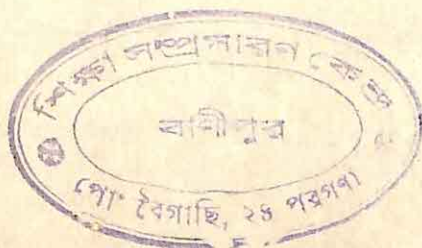 শিক্ষা সম্প্রসারন কেন্দ্র
বাণীপুর
পোঃ বৈগাছি, ২৪ পরগণা